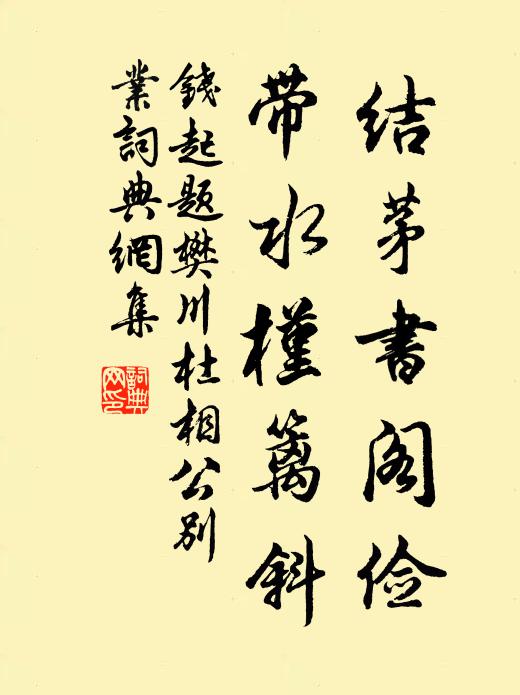 结茅书阁俭
带水槿篱斜
钱起题樊川杜相公别
业词典網集
詞典网印